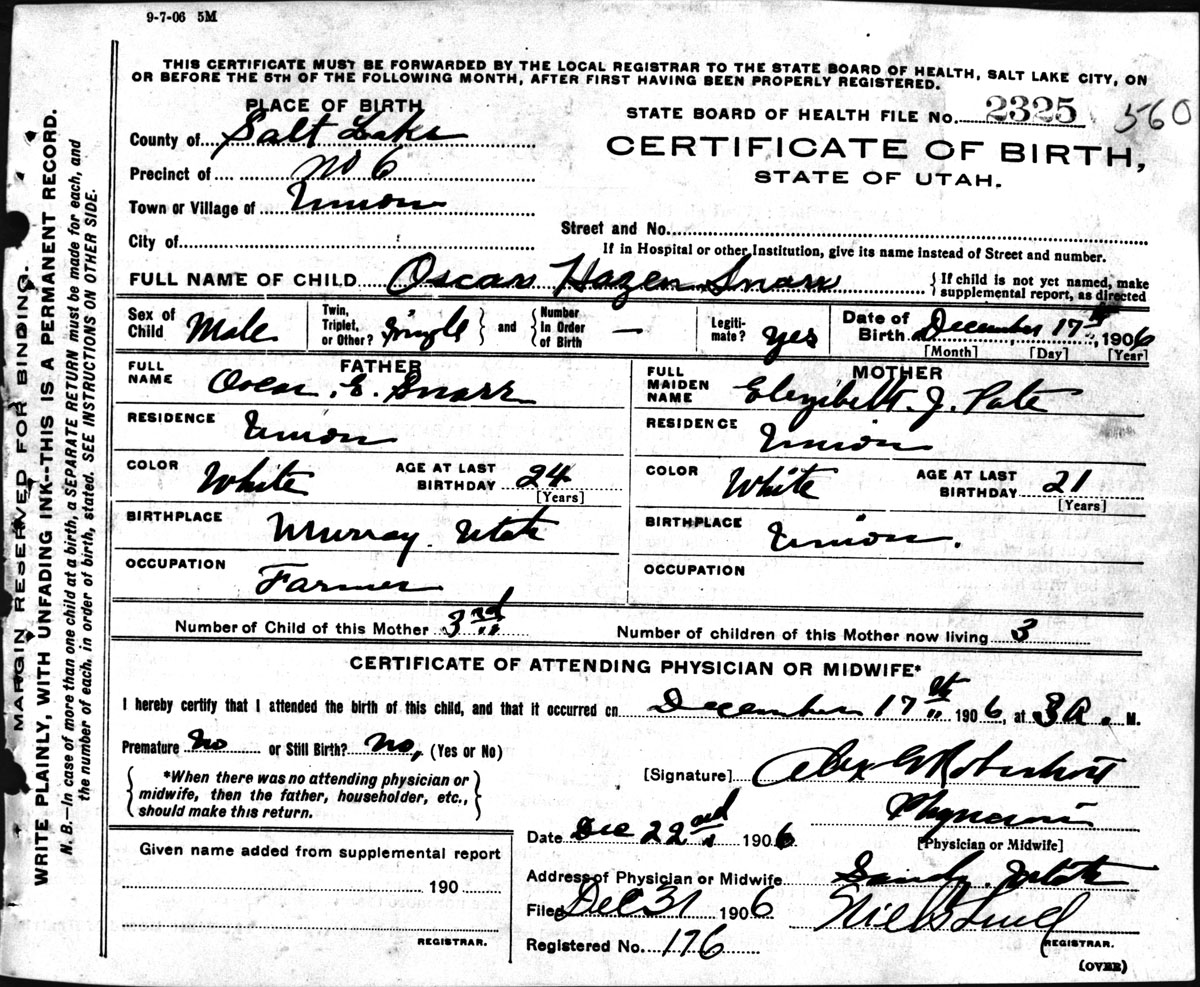 9-7-06 5M
THIS CERTIFICATE MUST BE FORWARDED BY THE LOCAL REGISTRAR TO THE STATE BOARD OF HEALTH, SALT LAKE CITY, ON
OR BEFORE THE 5TH OF THE FOLLOWING MONTH, AFTER FIRST HAVING BEEN PROPERLY REGISTERED.
PLACE OF BIRTH
County of Salt Lake
Precinct of No 6
Town or Village of Union
City of
STATE BOARD OF HEALTH FILE No. 2325 560
CERTIFICATE OF BIRTH,
STATE OF UTAH.
Street and No.
If in Hospital or other Institution, give its name instead of Street and number.
FULL NAME OF CHILD Oscar Hazen Snarr { If child is not yet named, make
supplemental report, as directed
Sex of Child Male
Twin, Triplet, or Other? Single } and { Number In Order of Birth —
Legiti-mate? Yes
Date of Birth December 17th, 1906
[Month] [Day] [Year]
FATHER
FULL NAME Oscar. E. Snarr
RESIDENCE Union
COLOR White AGE AT LAST BIRTHDAY 24
[Years]
BIRTHPLACE Murray. Utah
OCCUPATION Farmer
MOTHER
FULL MAIDEN NAME Elezibeth. J. Pate
RESIDENCE Union
COLOR White AGE AT LAST BIRTHDAY 21
[Years]
BIRTHPLACE Union.
OCCUPATION
Number of Child of this Mother 3rd Number of children of this Mother now living 3
CERTIFICATE OF ATTENDING PHYSICIAN OR MIDWIFE*
I hereby certify that I attended the birth of this child, and that it occurred on December 17th 1906, at 3 A. M.
Premature No or Still Birth? No, (Yes or No)
{ *When there was no attending physician or
midwife, then the father, householder, etc.,
should make this return. }
[Signature] Alex G Robertson
Physician
[Physician or Midwife]
Date Dec 22nd 1906
Address of Physician or Midwife Sandy. Utah
Filed Dec 31 1906 Niels Lind
REGISTRAR.
Registered No. 176
(OVER)
Given name added from supplemental report
190
REGISTRAR.
MARGIN RESERVED FOR BINDING.
WRITE PLAINLY, WITH UNFADING INK--THIS IS A PERMANENT RECORD.
N. B.—In case of more than one child at a birth, a SEPARATE RETURN must be made for each, and
the number of each, in order of birth, stated. SEE INSTRUCTIONS ON OTHER SIDE.